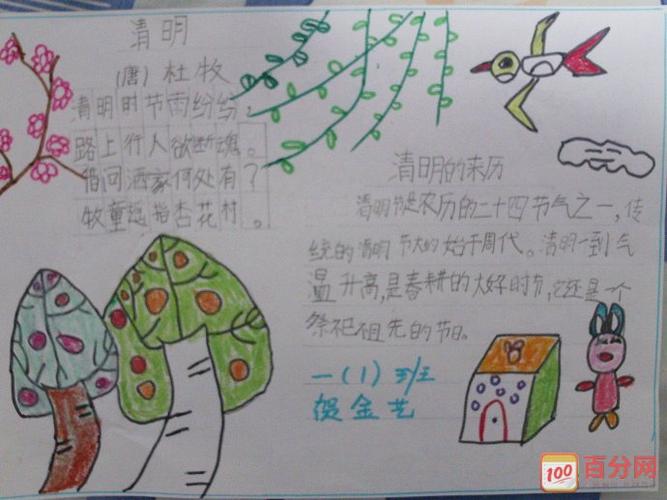 清明
(唐) 杜牧
清明时节雨纷纷，
路上行人欲断魂。
借问酒家何处有？
牧童遥指杏花村。
清明的来历
清明节是农历的二十四节气之一，传
统的清明节大约始于周代。清明一到气
温升高，是春耕的大好时节，它还是一个
祭祀祖先的节日。
一(1)班
贺金艺
100
百分网